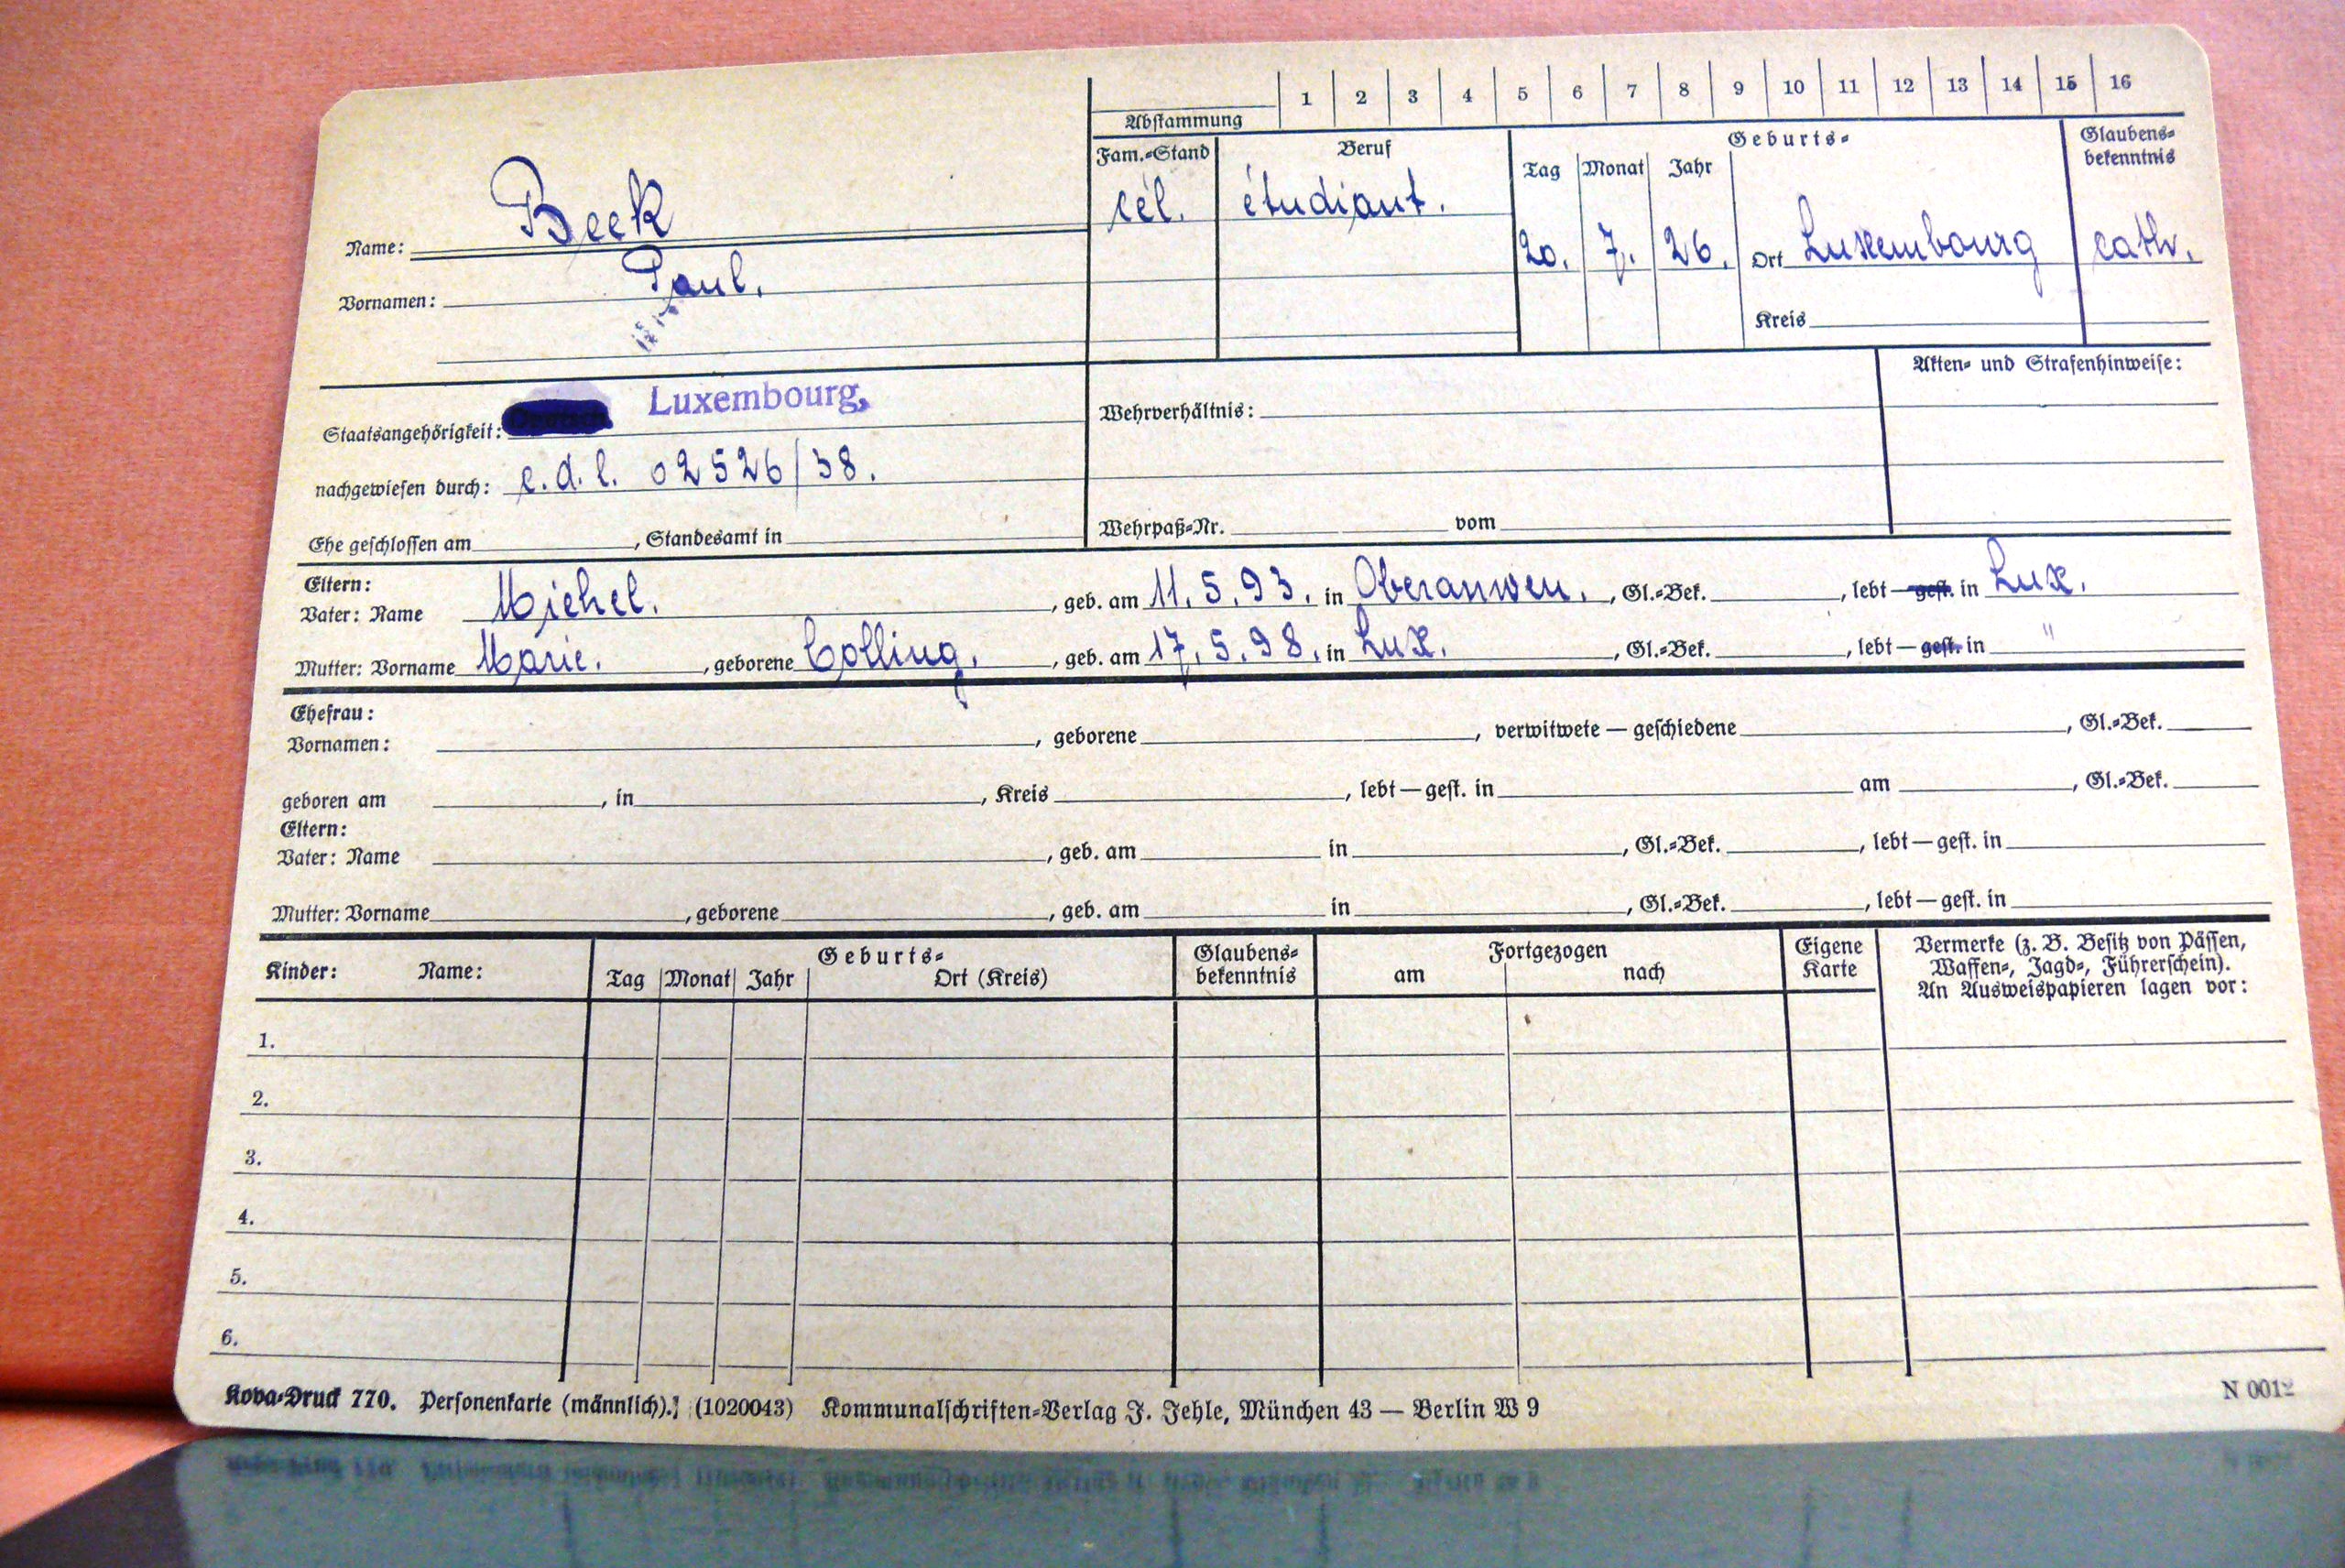 1 2 3 4 5 6 7 8 9 10 11 12 13 14 15 16
Abstammung
Fam.=Stand Beruf Geburts= Glaubens=
bekenntnis
Tag Monat Jahr
Name: Beck cél. étudiant. 20. 7. 26. Ort Luxembourg cath.
Vornamen: Paul.
Kreis
Akten= und Strafenhinweise:
Staatsangehörigkeit: Deutsch Luxembourg,
Wehrverhältnis:
nachgewiesen durch: c.d.l. 02526/38.
Ehe geschlossen am , Standesamt in
Wehrpaß=Nr. vom
Eltern:
Vater: Name Michel. , geb. am 11.5.93. in Oberanwen. , Gl.=Bek. , lebt — gest. in Lux.
Mutter: Vorname Marie. , geborene Colling. , geb. am 17.5.98. in Lux. , Gl.=Bek. , lebt — gest. in "
Ehefrau:
Vornamen: , geborene , verwitwete — geschiedene , Gl.=Bek.
geboren am , in , Kreis , lebt — gest. in am , Gl.=Bek.
Eltern:
Vater: Name , geb. am in , Gl.=Bek. , lebt — gest. in
Mutter: Vorname , geborene , geb. am in , Gl.=Bek. , lebt — gest. in
Kinder: Name: Geburts= Glaubens=
bekenntnis Fortgezogen Eigene
Karte Vermerke (z. B. Besitz von Pässen,
Waffen=, Jagd=, Führerschein).
An Ausweispapieren lagen vor:
Tag Monat Jahr Ort (Kreis) am nach
1.
2.
3.
4.
5.
6.
Kova=Druck 770. Personenkarte (männlich). (1020043) Kommunalschriften=Verlag J. Jehle, München 43 — Berlin W 9
N 0012